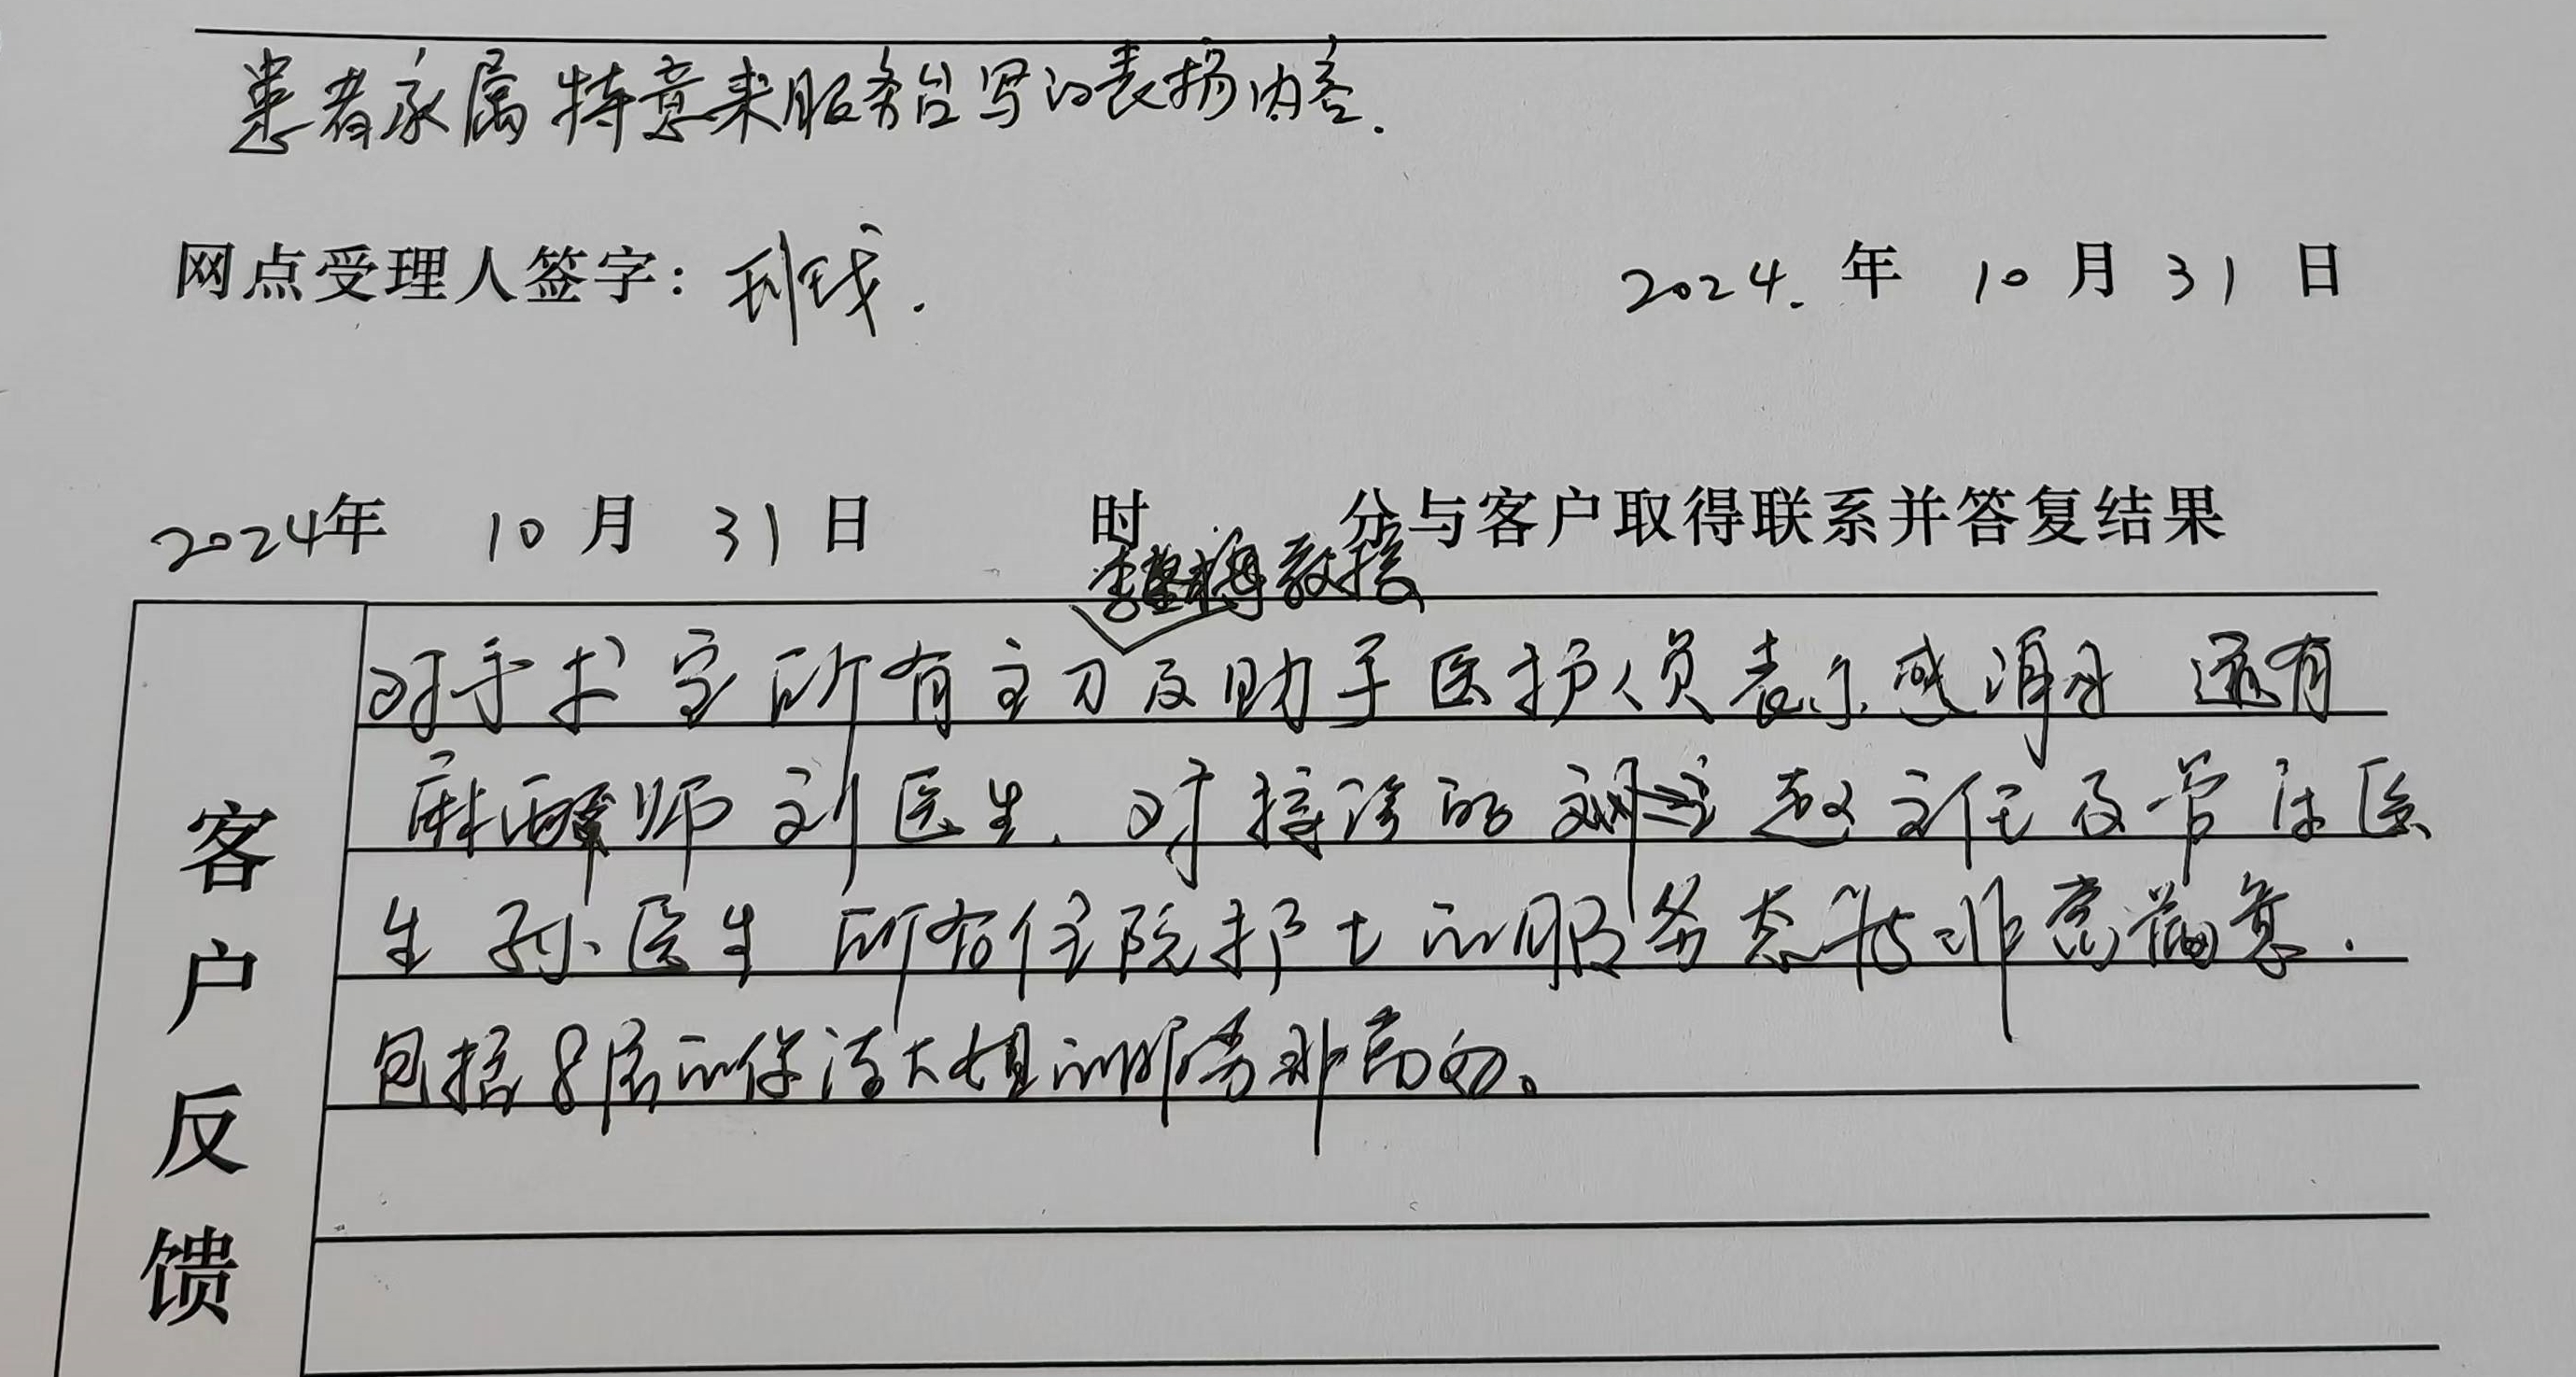 患者家属特意来服务台写的表扬内容.
网点受理人签字：
2024. 年 10 月 31 日
2024年 10 月 31 日 时 分与客户取得联系并答复结果
教授
对手术室所有主刀及助手医护人员表示感谢 还有
麻醉师刘医生. 对接诊的 赵主任及管床医
生 孙医生 所有住院护士的服务态度非常满意.
包括8层的保洁大姐的服务非常好。
客户反馈